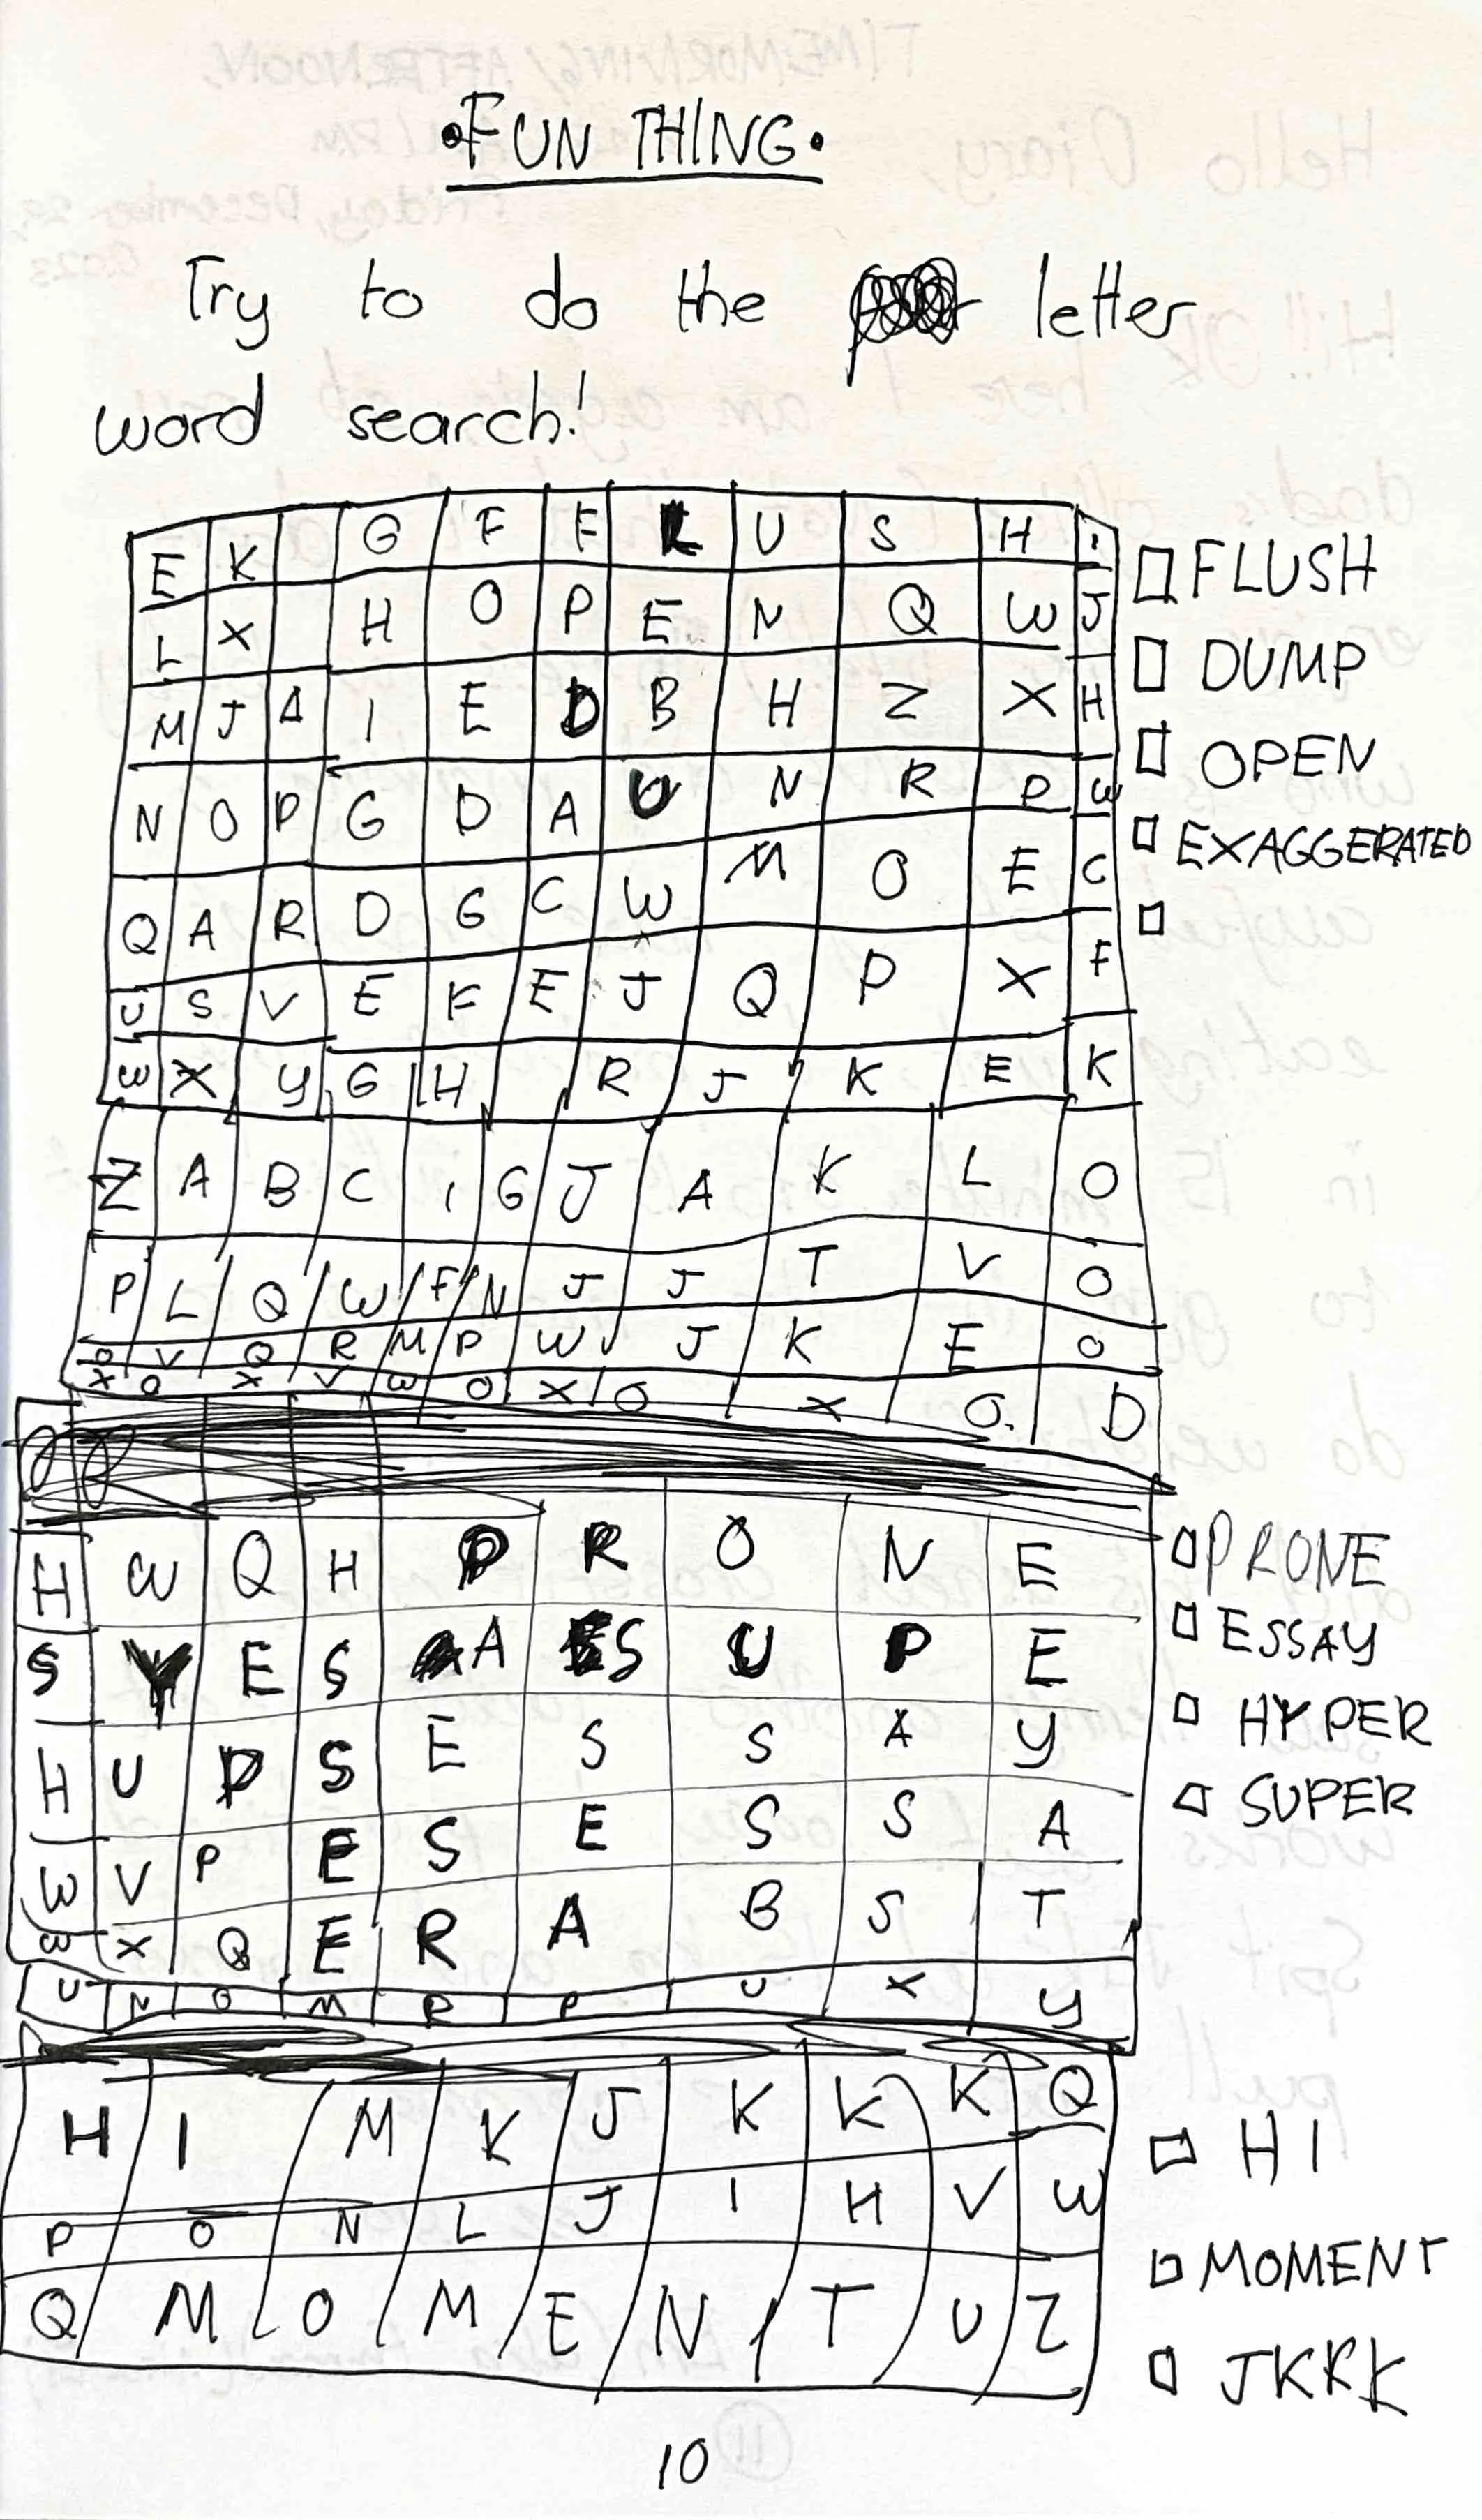 •FUN THING•
Try to do the letter
word search!
E K G F F L U S H I
L X H O P E N Q W J
M J A I E D B H Z X H
N O P G D A U N R P W
Q A R D G C W M O E C
U S V E F E J Q P X F
W X Y G H R J K E K
Z A B C I G J A K L O
P L Q W F N J J T V O
O V Q R M P W J K E O
X O X V W O X O X O D
□ FLUSH
□ DUMP
□ OPEN
□ EXAGGERATED
□
H W Q H P R O N E
S Y E S A S U P E
H U P S E S S A Y
W V P E S E S S A
B X Q E R A B S T
U N O M R P U X Y
□ PRONE
□ ESSAY
□ HYPER
□ SUPER
H I M K J K K K Q
P O N L J I H V W
Q M O M E N T U Z
□ HI
□ MOMENT
□ JKKK
10